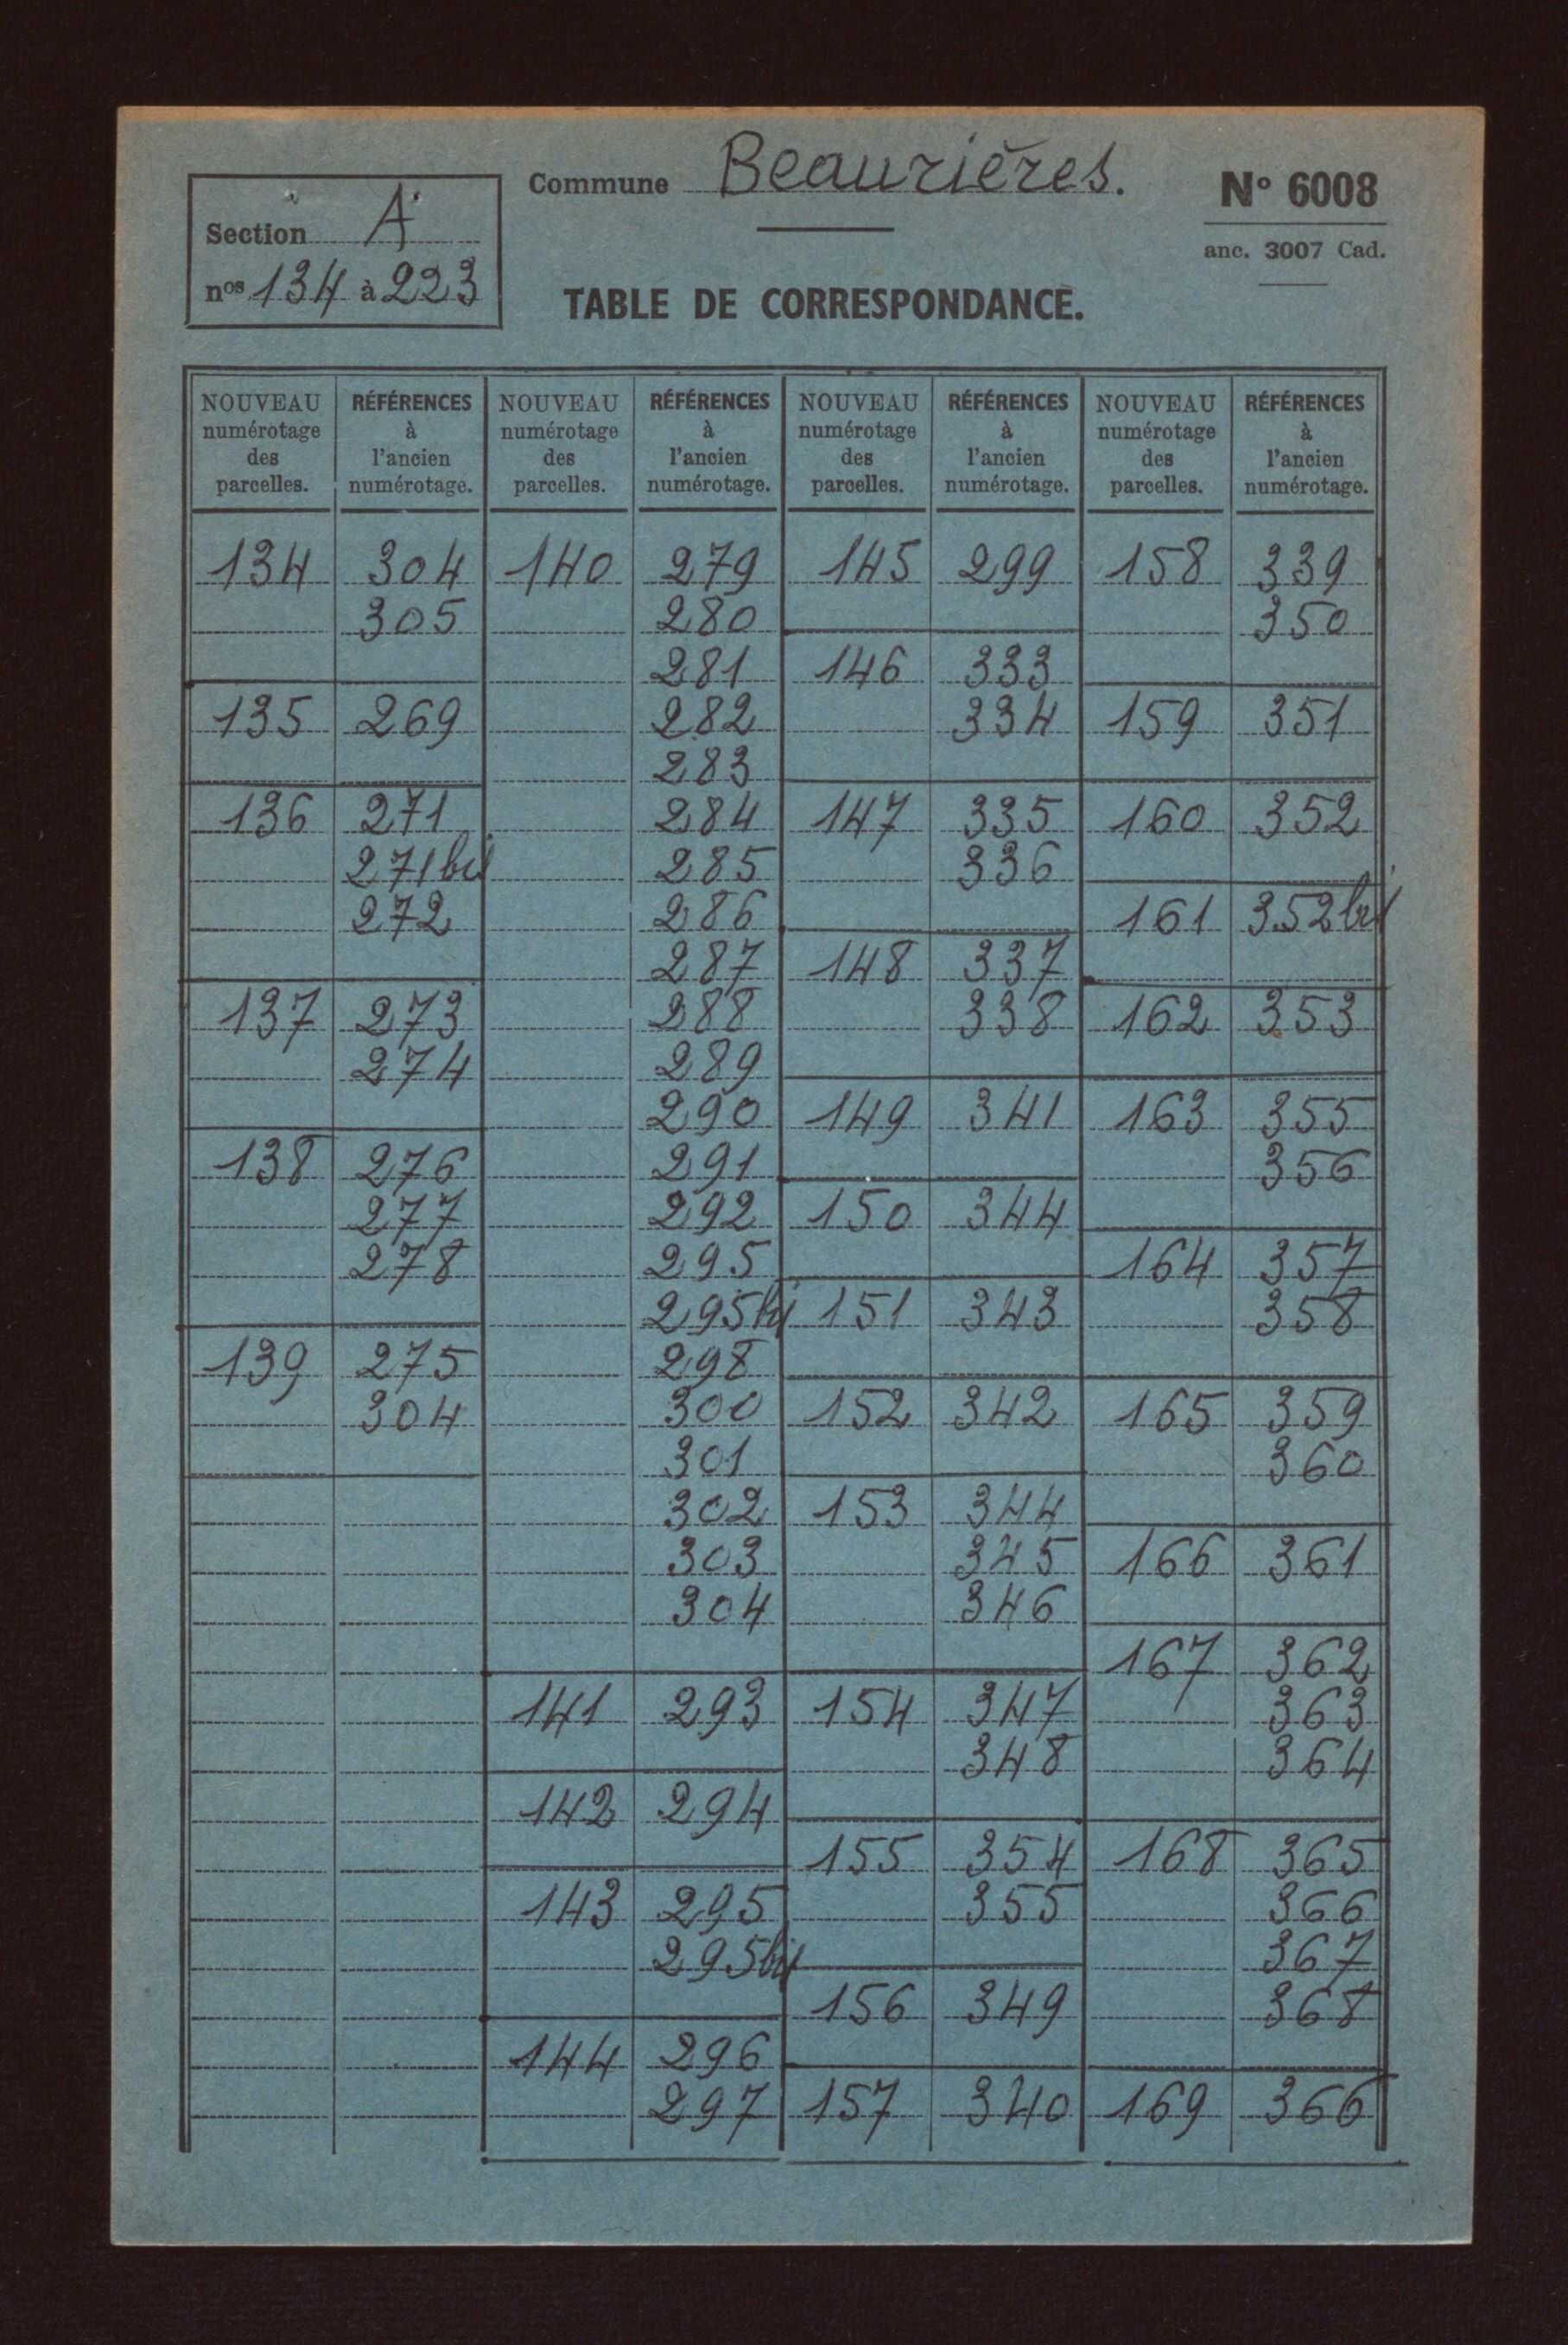 Commune Beaurières.
N° 6008
anc. 3007 Cad.
Section A
nos 134 à 223
TABLE DE CORRESPONDANCE.
NOUVEAU numérotage des parcelles. RÉFÉRENCES à l'ancien numérotage. NOUVEAU numérotage des parcelles. RÉFÉRENCES à l'ancien numérotage. NOUVEAU numérotage des parcelles. RÉFÉRENCES à l'ancien numérotage. NOUVEAU numérotage des parcelles. RÉFÉRENCES à l'ancien numérotage.
134 304 140 279 145 299 158 339
305 280 350
281 146 333
135 269 282 334 159 351
283
136 271 284 147 335 160 352
271bis 285 336
272 286 161 352bis
287 148 337
137 273 288 338 162 353
274 289
290 149 341 163 355
138 276 291 356
277 292 150 344
278 295 164 357
295bis 151 343 358
139 275 298
304 300 152 342 165 359
301 360
302 153 344
303 345 166 361
304 346
167 362
141 293 154 347 363
348 364
142 294
155 354 168 365
143 295 355 366
295bis 367
156 349 368
144 296
297 157 340 169 366